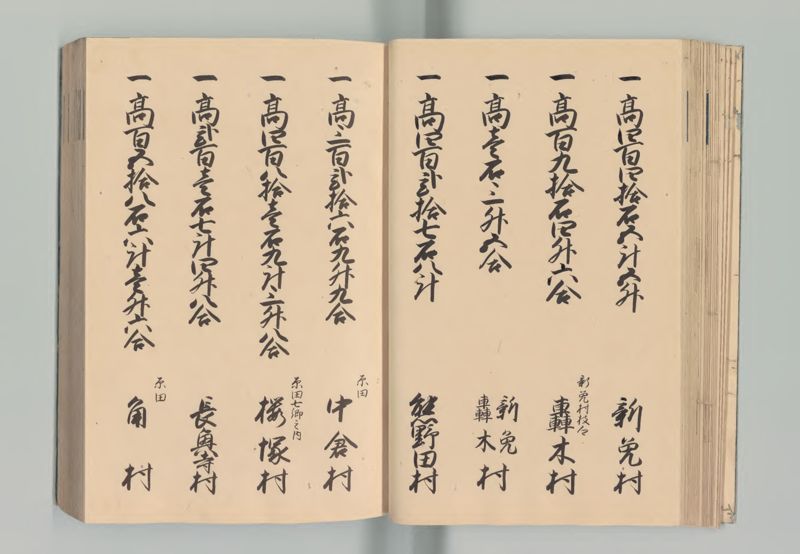 一 髙四百四拾石五斗五升 新免村
一 髙百九拾石四升六合 新免村枝 轟木村
一 髙壱石三升五合 新免 轟木村
一 髙四百弐拾七石八斗 熊野田村
一 髙三百弐拾六石九升九合 原田 中倉村
一 髙四百八拾壱石九斗三升八合 原田七郷之内 櫻塚村
一 髙弐百壱石七斗四升八合 長興寺村
一 髙百五拾八石六斗壱升六合 原田 角村